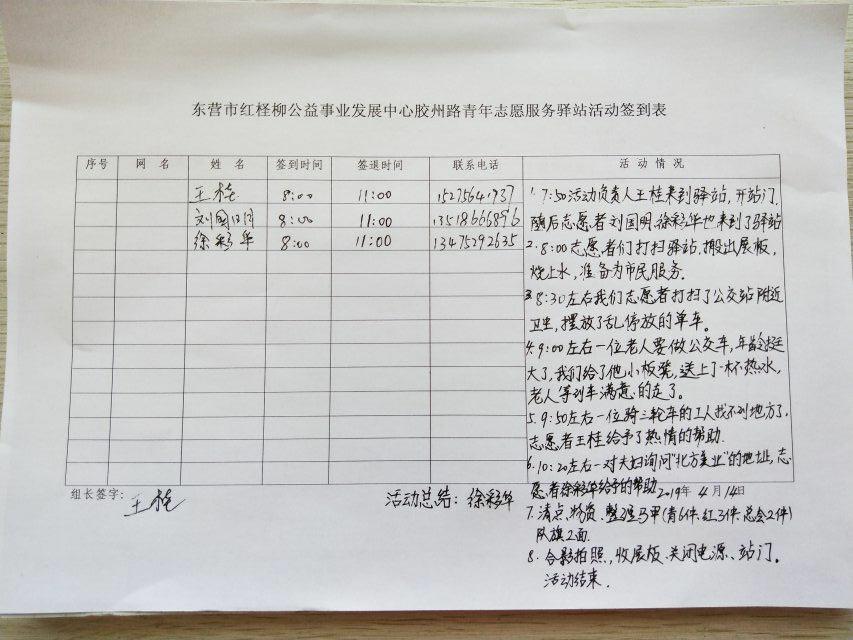 东营市红柽柳公益事业发展中心胶州路青年志愿服务驿站活动签到表
序号 网名 姓名 签到时间 签退时间 联系电话 活动情况
王桂 8:00 11:00 15275641937
刘国明 8:00 11:00 13518666896
徐彩华 8:00 11:00 13475292635
1.7:50活动负责人王桂来到驿站,开站门
随后志愿者刘国明、徐彩华也来到了驿站
2.8:00志愿者们打扫驿站,搬出展板,
烧上水,准备为市民服务.
3.8:30左右我们志愿者打扫了公交站附近
卫生,摆放了乱停放的单车。
4.9:00左右一位老人要做公交车,年龄挺
大了,我们给了他小板凳,送上了一杯热水,
老人等到车满意的走了。
5.9:50左右一位骑三轮车的工人找不到地方了,
志愿者王桂给予了热情的帮助.
6.10:20左右一对夫妇询问“北方美业”的地址,志
愿者徐彩华给予的帮助
组长签字:王桂 活动总结:徐彩华 2019年4月14日
7.清点物资、整理马甲(青6件、红3件、总会2件)
队旗2面.
8.合影拍照,收展版、关闭电源、站门。
活动结束.